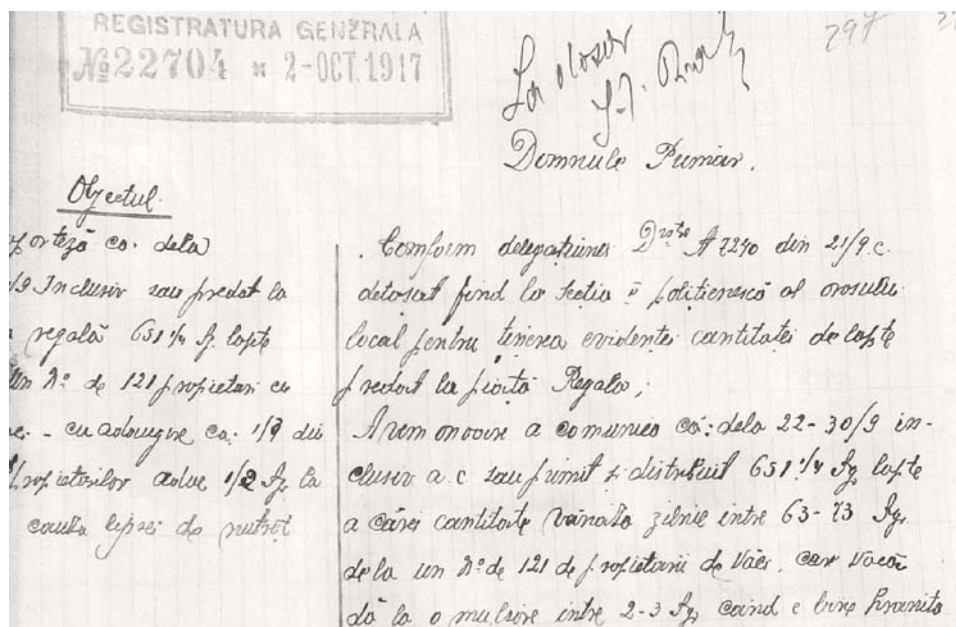 REGISTRATURA GENERALA
№ 22704 * 2-OCT. 1917
297
La dosar
Domnule Primar.
Obiectul.
orteză că dela
/9 Inclusiv sau predat la
regală 651 1/4 kg. lapte
un No. de 121 propietari cu
cu adougire că 1/9 din
propietarilor aduc 1/2 kg la
cauza lipsei de nutreț
Comform delegatiunei Dvstre № 7240 din 21/9. c.
detasat fiind la Sectia II politienescă al orasului
local pentru tinerea evidentei cantitatei de lapte
predat la piata Regala,
Avem onoare a comunica că: dela 22-30/9 in-
clusiv a.c sau primit si distribuit 651 1/4 kg lapte
a cărei cantitate zilnic intre 63-73 kg.
dela un No de 121 de propietarii de văci, car vacă
dă la o mulsore intre 2-3 kg cand e bine hranita